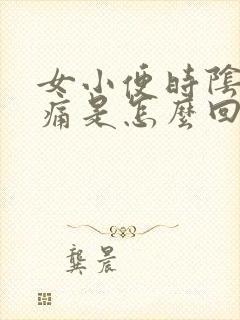 女小便時陰
痛是怎麼回
龔晨